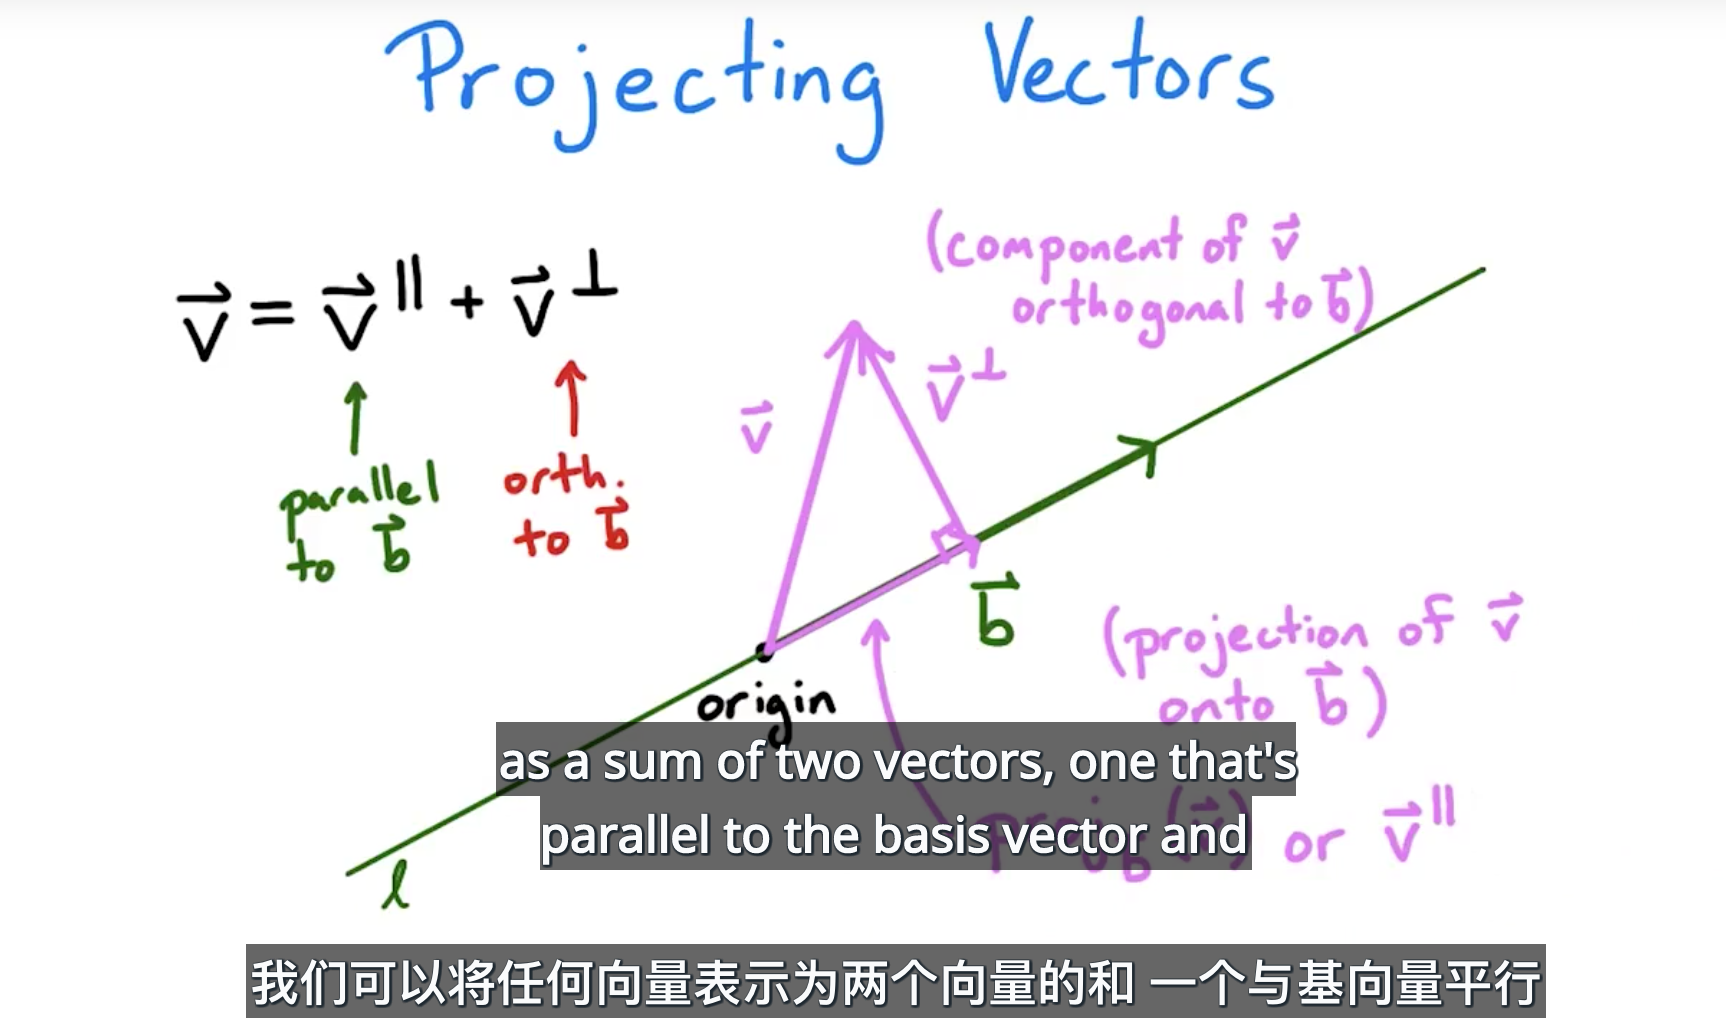 Projecting Vectors
v⃗ = v⃗^∥ + v⃗^⊥
parallel
to b⃗
orth.
to b⃗
(component of v⃗
orthogonal to b⃗)
v⃗
v⃗^⊥
b⃗
origin
(projection of v⃗
onto b⃗)
proj_b (v⃗) or v⃗^∥
l
as a sum of two vectors, one that's
parallel to the basis vector and
我们可以将任何向量表示为两个向量的和 一个与基向量平行